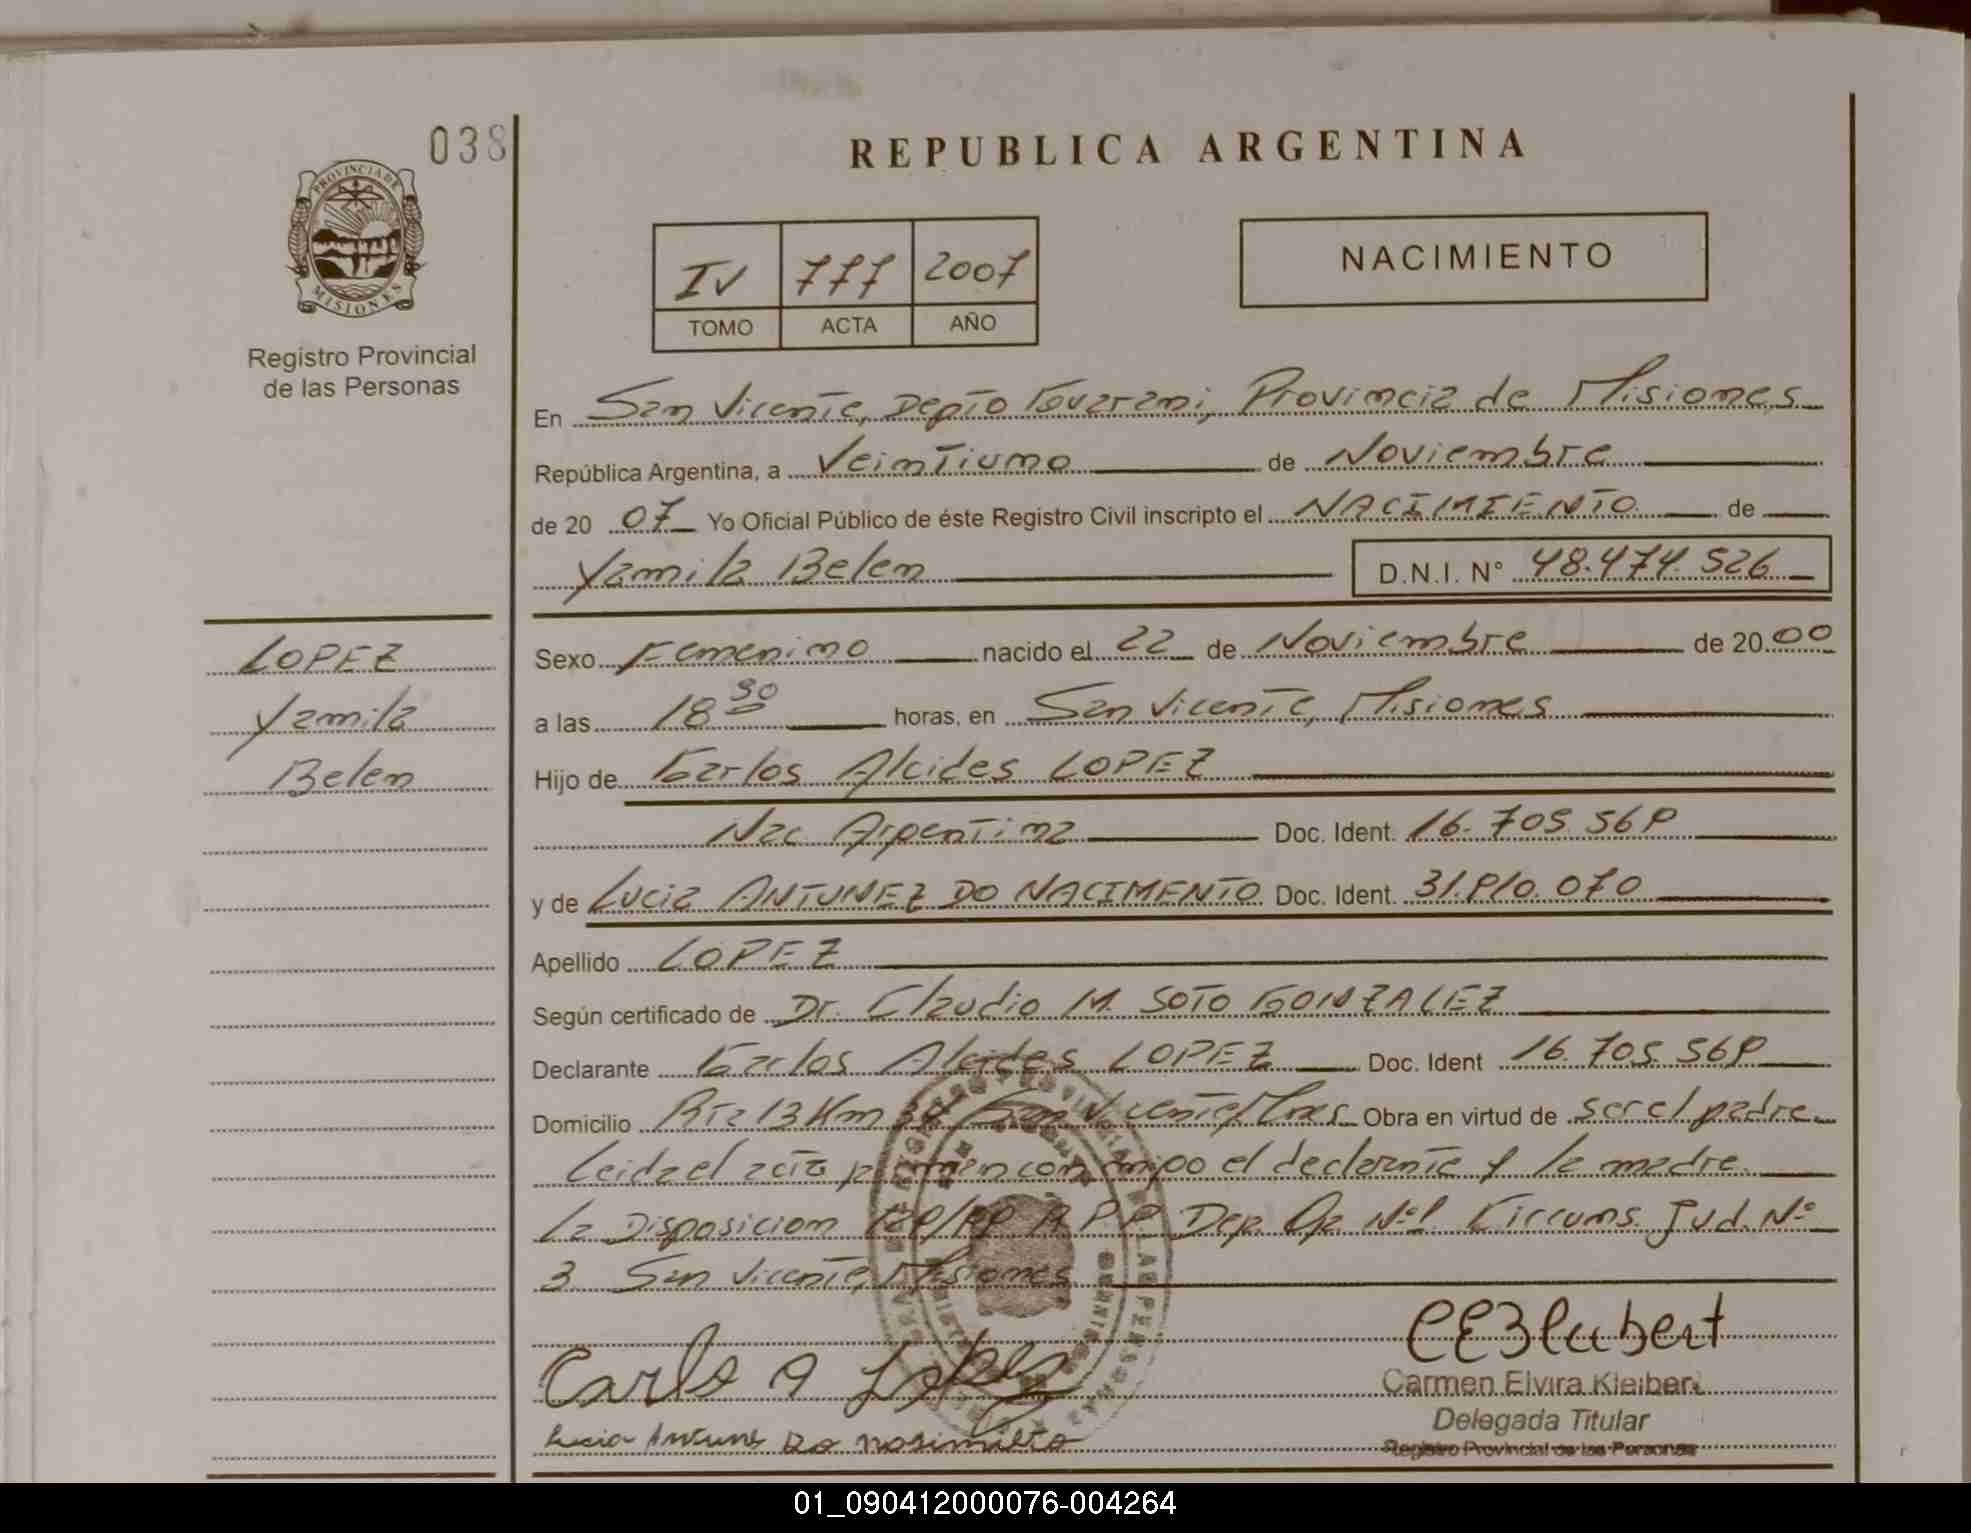 038
PROVINCIA DE
MISIONES
Registro Provincial
de las Personas
REPUBLICA ARGENTINA
IV 777 2007
TOMO ACTA AÑO
NACIMIENTO
En San Vicente, Depto Guarani, Provincia de Misiones
República Argentina, a Veintiuno de Noviembre
de 20 07 Yo Oficial Público de éste Registro Civil inscripto el NACIMIENTO de
Yamila Belen D.N.I. N° 48.474.526
LOPEZ
Yamila
Belen
Sexo Femenino nacido el 22 de Noviembre de 20 00
a las 18 30 horas, en San Vicente, Misiones
Hijo de Carlos Alcides LOPEZ
Nac Argentina Doc. Ident. 16.705.568
y de Lucia ANTUNEZ DO NACIMENTO Doc. Ident. 31.810.070
Apellido LOPEZ
Según certificado de Dr. Claudio M. SOTO GONZALEZ
Declarante Carlos Alcides LOPEZ Doc. Ident 16.705.568
Domicilio Rta 13 Km San Vicente Obra en virtud de ser el padre
Leida el acta el declarante y la madre
la Disposicion Circuns. Jud. N°
3 San Vicente, Misiones
Carlo A Lopez
CEKleibert
Carmen Elvira Kleibert
Delegada Titular
Registro Provincial de las Personas
Lucia Antunes do nosimieto
01_090412000076-004264